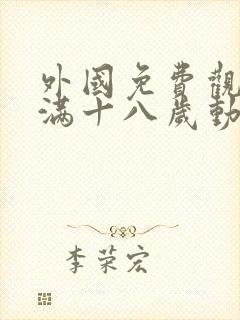 外國免費觀
滿十八歲動
李荣宏